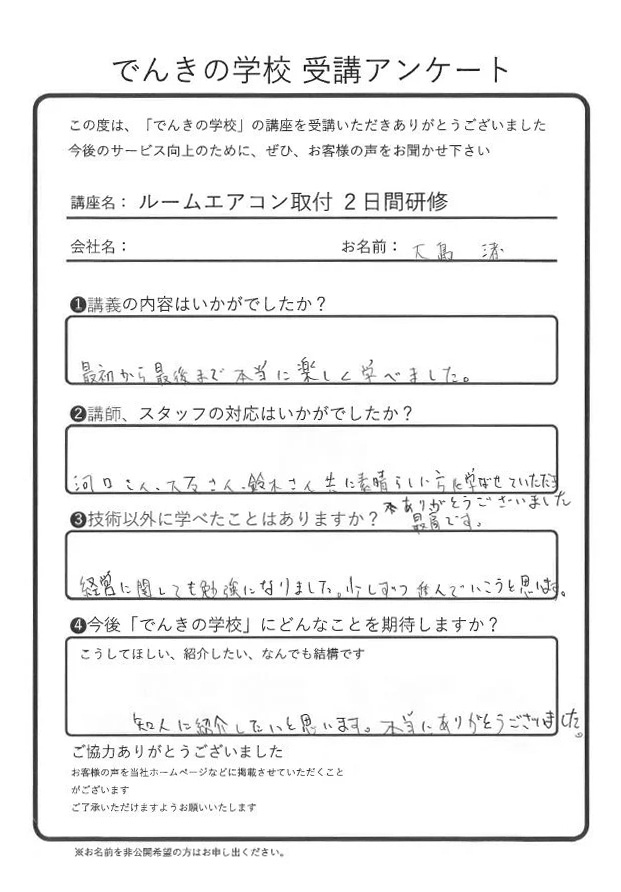 でんきの学校 受講アンケート
この度は、「でんきの学校」の講座を受講いただきありがとうございました
今後のサービス向上のために、ぜひ、お客様の声をお聞かせ下さい
講座名： ルームエアコン取付 ２日間研修
会社名： お名前： 大島 渚
❶講義の内容はいかがでしたか？
最初から最後まで本当に楽しく学べました。
❷講師、スタッフの対応はいかがでしたか？
河口さん、大友さん、鈴木さん共に素晴らしい方に学ばせていただき
本ありがとうございました
❸技術以外に学べたことはありますか？ 最高です。
経営に関しても勉強になりました。少しずつ進んでいこうと思います。
❹今後「でんきの学校」にどんなことを期待しますか？
こうしてほしい、紹介したい、なんでも結構です
知人に紹介したいと思います。本当にありがとうございました。
ご協力ありがとうございました
お客様の声を当社ホームページなどに掲載させていただくこと
がございます
ご了承いただけますようお願いいたします
※お名前を非公開希望の方はお申し出ください。